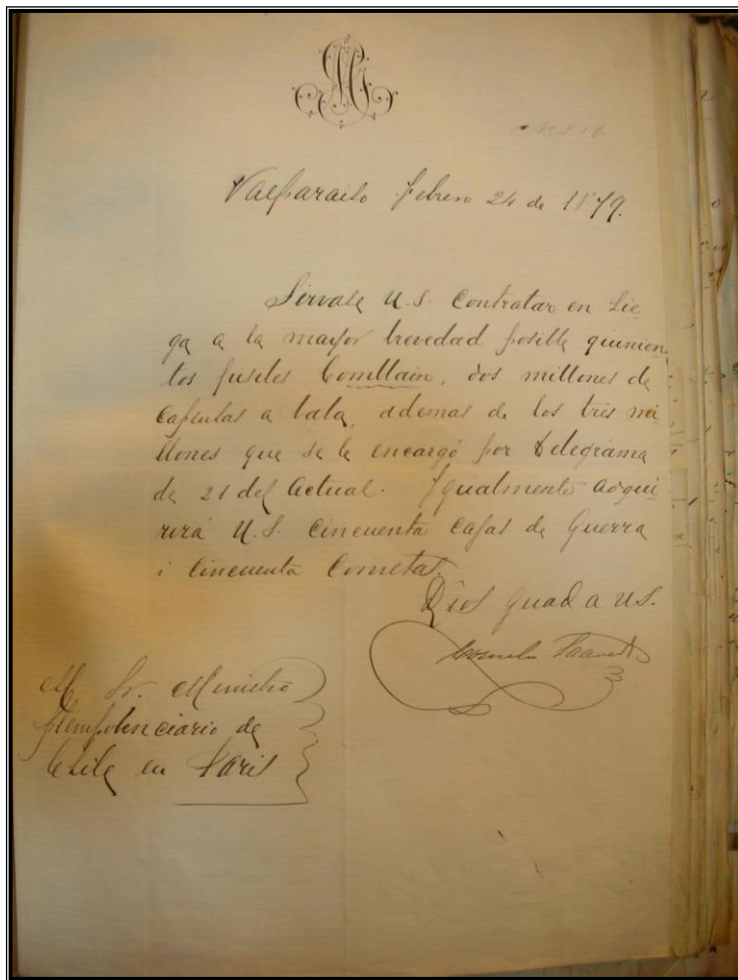 Nº 216
Valparaiso Febrero 24 de 1879.
Sirvase U.S. Contratar en Lie
ga a la mayor brevedad posible quinien
tos fusiles Comllain, dos millones de
Capsulas a bala, ademas de los tres mi
llones que se le encargó por telegrama
de 21 del actual. Igualmente adqui
rirá U.S. Cincuenta Cajas de Guerra
i Cincuenta Cornetas.
Dios gua d a US.
Cornelio Saavedra
Al Sr. Ministro
Plenipotenciario de
Chile en Paris